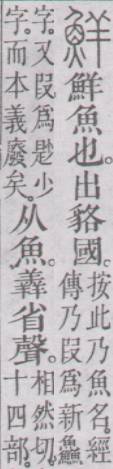 鮮鮮魚也。出貉國。按此乃魚名。經傳乃叚爲新鱻
字。又叚爲尟少字。而本義廢矣。从魚。羴省聲。相然切。十四部。